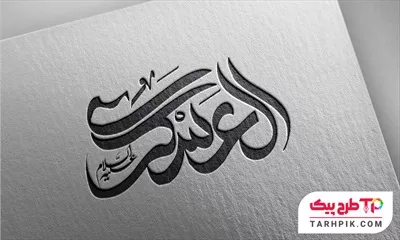 العسکری
علیه السلام
طرح پیک
TARHPIK.COM